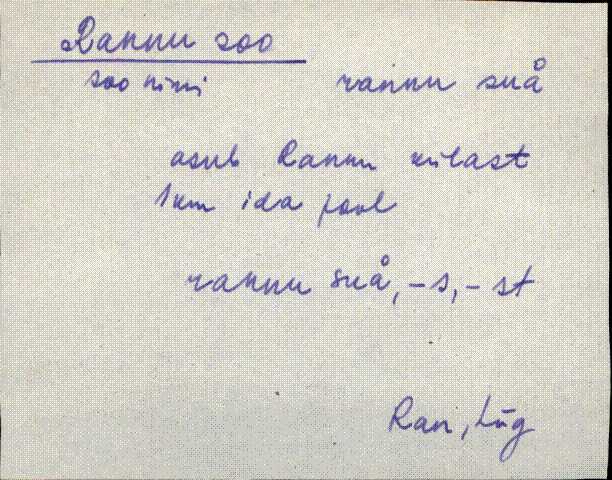 Rannu soo
soo nimi rannu suå
asub Rannu külast
1 km ida pool
rannu suå, -s, -st
Ran, Lüg